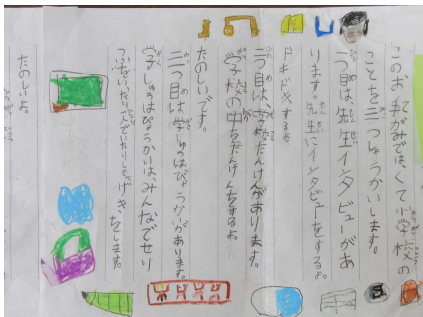 このお手がみでは、くて小学校の
ことを三つしょうかいします。
一つ目は、先生インタビューがあ
ります。先生にインタビューをするよ。
ドキドキするよ
二つ目は、学校たんけんがあります。
学校の中をたんけんをするよ
たのしいです。
三つ目は、学しゅうはっぴょうかいがあります。
学しゅうはっぴょうかいは、みんなでせり
たのしいよ。